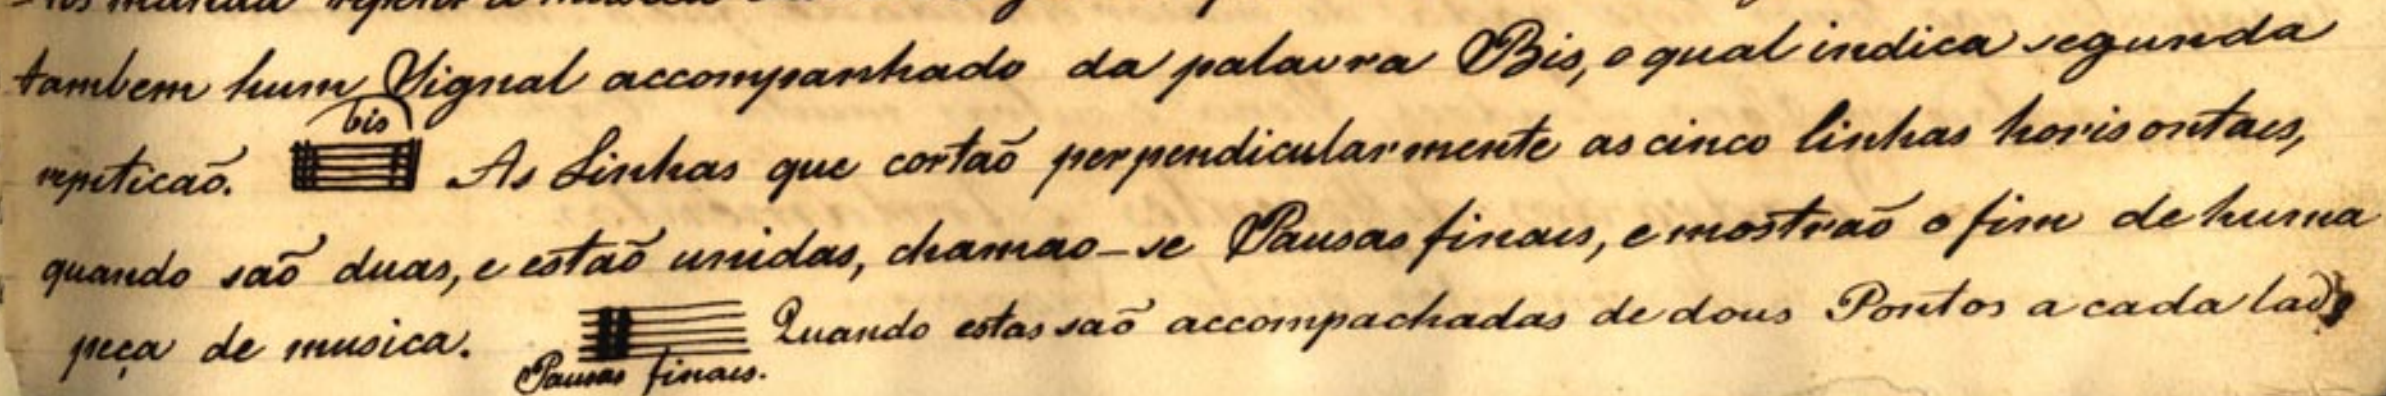 tambem hum Signal accompanhado da palavra Bis, o qual indica segunda
bis
repiticaõ. As Linhas que cortaõ perpendicularmente as cinco linhas horisontaes,
quando saõ duas, e estaõ unidas, chamao-se Pausas finaes, e mostraõ o fim de huma
peça de musica. Quando estas saõ accompachadas de dous Pontos a cada lado
Pausas finaes.